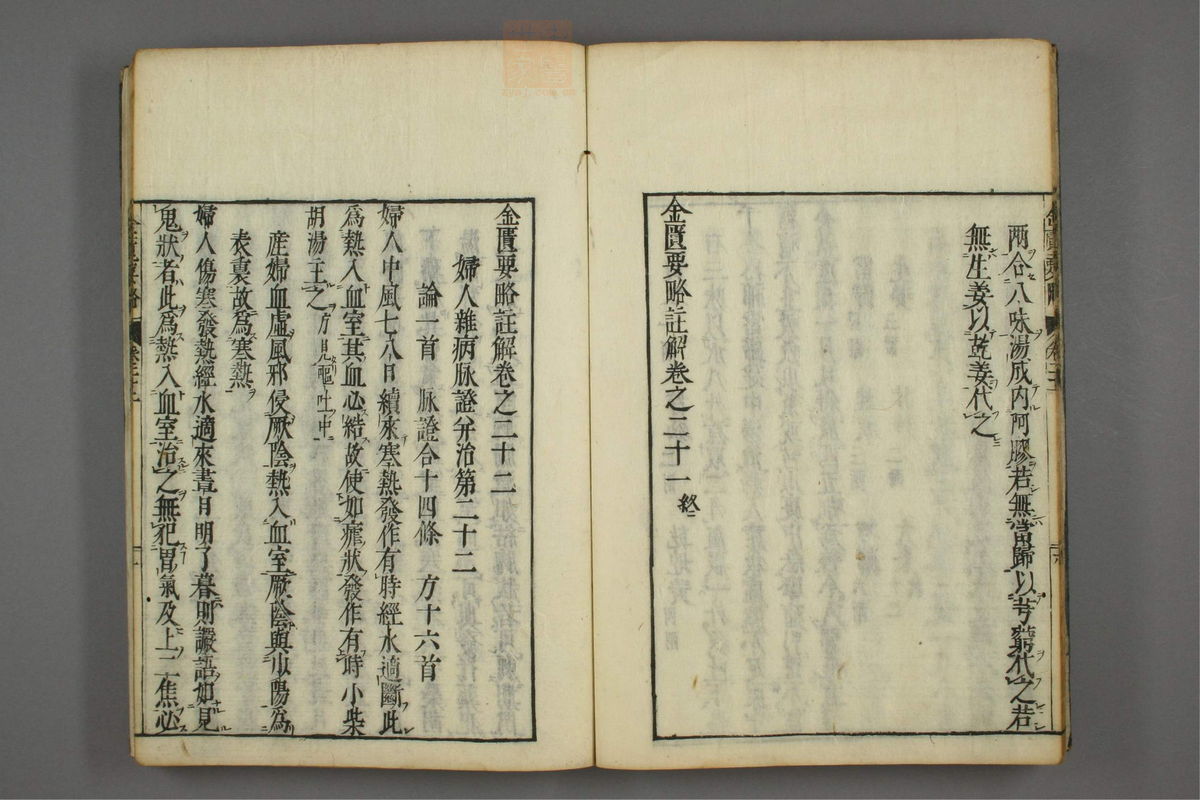 两合八味湯成内阿膠若無當歸以芎藭代之若
無生姜以乾姜代之
金匱要略註解卷之二十一 終
金匱要略註解卷之二十二
婦人雜病脉證并治第二十二
論一首 脉證合十四條 方十六首
婦人中風七八日續來寒熱發作有時經水適斷此
爲熱入血室其血必結故使如瘧狀發作有時小柴
胡湯主之方見嘔吐中
產婦血虛風邪侵厥陰熱入血室厥陰與少陽爲
表裏故爲寒熱
婦人傷寒發熱經水適來晝日明了暮則譫語如見
鬼狀者此爲熱入血室治之無犯胃氣及上二焦必